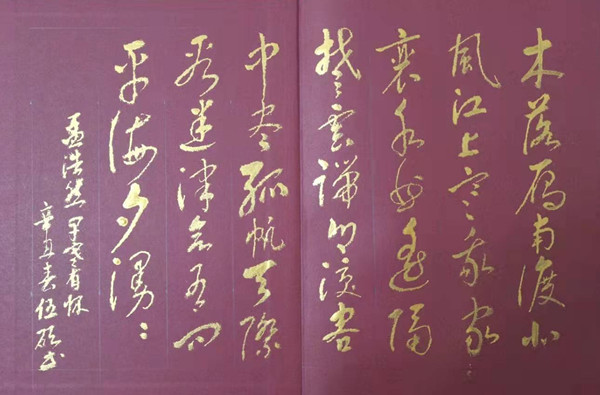 木落雁南渡北
風江上寒我家
襄水曲遥隔
楚雲端乡淚客
中尽孤帆天際
看迷津欲有问
平海夕漫〻
孟浩然 早寒有怀
辛丑春伍硕书